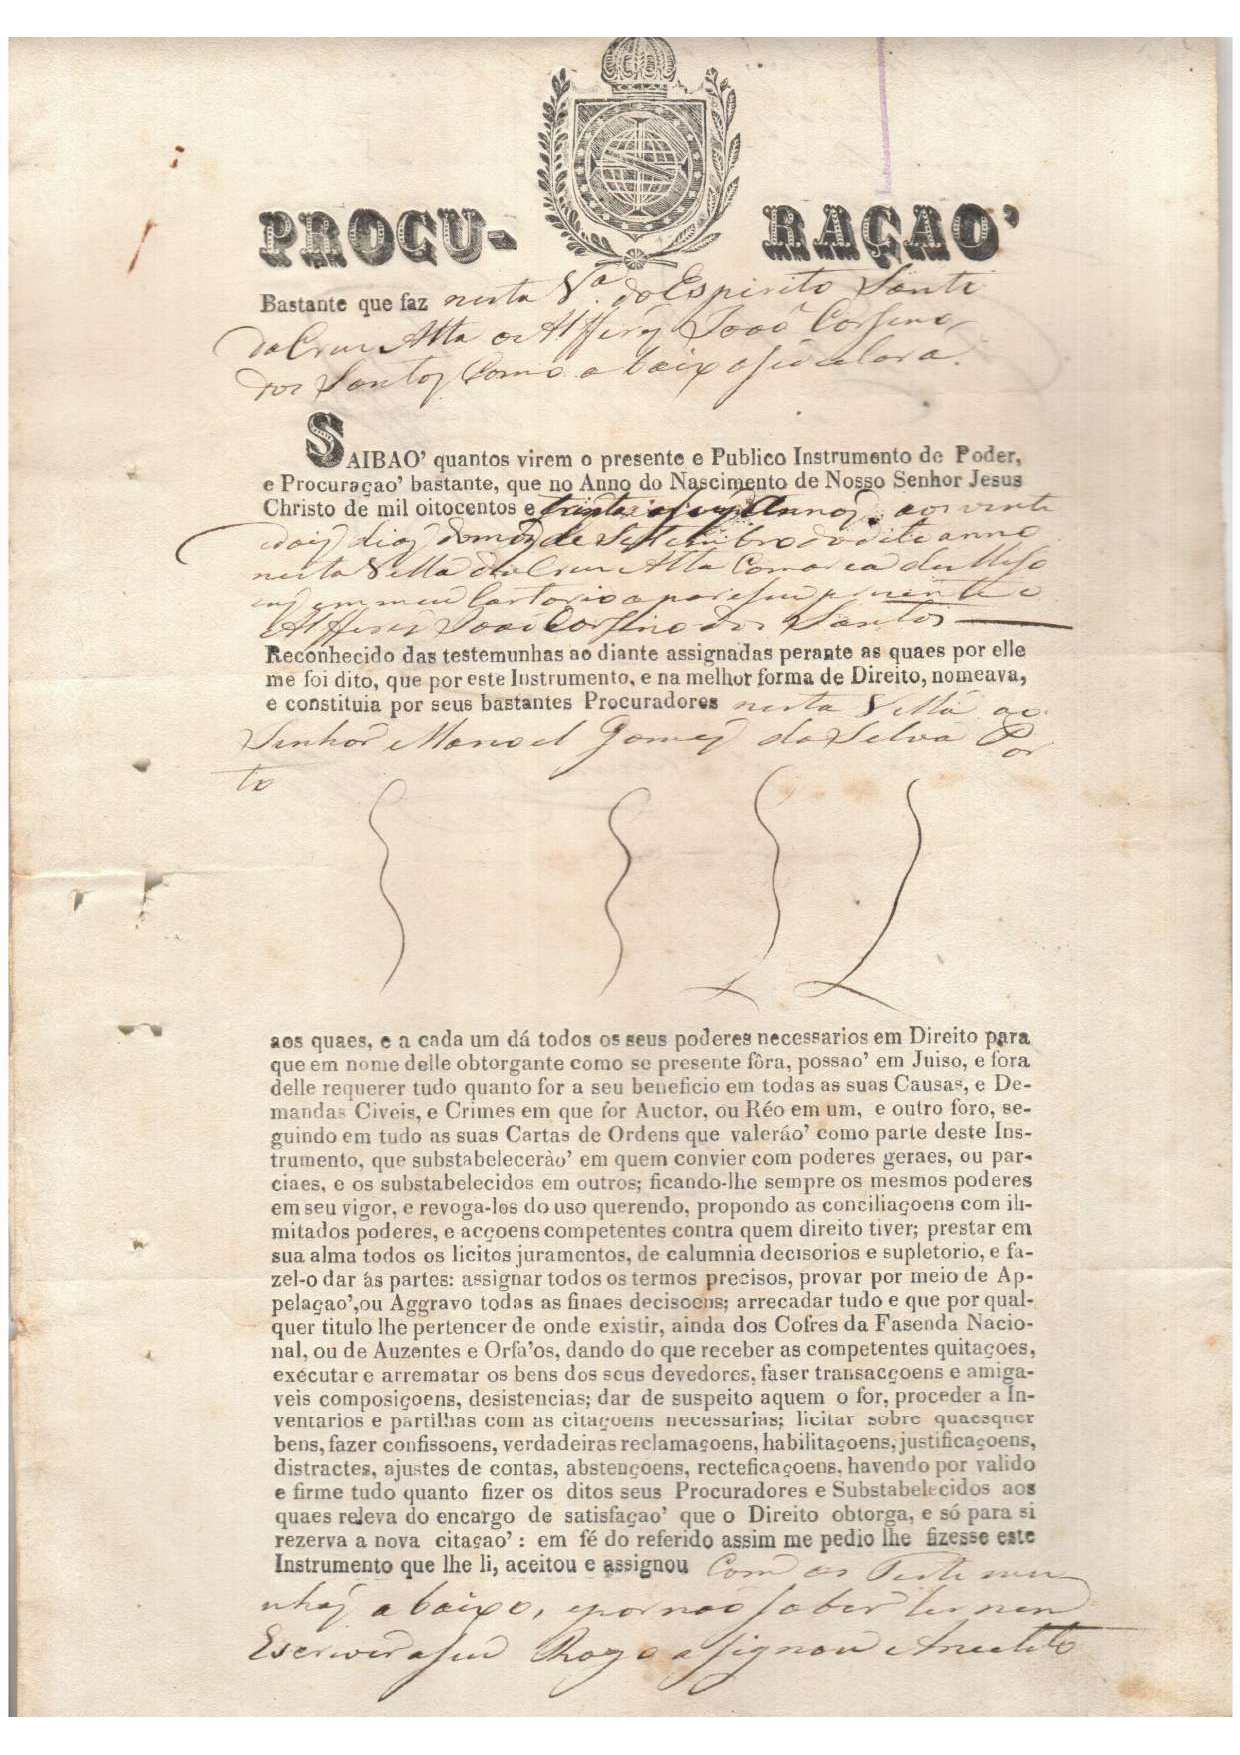 PROCU- RAÇAO'
Bastante que faz nesta Vª. do Espirito Santo
da Cruz Alta o Alferes Joaõ Corsino
dos Santos Como abaixo se declara.
SAIBAO' quantos virem o presente e Publico Instrumento de Poder,
e Procuraçao' bastante, que no Anno do Nascimento de Nosso Senhor Jesus
Christo de mil oitocentos e trinta Annos, aos vinte
e dois dias do mes de Settembro do dito anno
nesta Villa da Cruz Alta Comarca de Miso
ens em meu Cartorio a pareseu prezente o
Alferes Joaõ Corsino dos Santos
Reconhecido das testemunhas ao diante assignadas perante as quaes por elle
me foi dito, que por este Instrumento, e na melhor forma de Direito, nomeava,
e constituia por seus bastantes Procuradores nesta Villa ao
Senhor Manoel Gomes da Silva Por
to
aos quaes, e a cada um dá todos os seus poderes necessarios em Direito para
que em nome delle obtorgante como se presente fôra, possao' em Juiso, e fora
delle requerer tudo quanto for a seu beneficio em todas as suas Causas, e De-
mandas Civeis, e Crimes em que for Auctor, ou Réo em um, e outro foro, se-
guindo em tudo as suas Cartas de Ordens que valeráo' como parte deste Ins-
trumento, que substabelecerào' em quem convier com poderes geraes, ou par-
ciaes, e os substabelecidos em outros; ficando-lhe sempre os mesmos poderes
em seu vigor, e revoga-los do uso querendo, propondo as conciliaçoens com ili-
mitados poderes, e acçoens competentes contra quem direito tiver; prestar em
sua alma todos os licitos juramentos, de calumnia decisorios e supletorio, e fa-
zel-o dar ás partes: assignar todos os termos precisos, provar por meio de Ap-
pelaçao', ou Aggravo todas as finaes decisoens; arrecadar tudo e que por qual-
quer titulo lhe pertencer de onde existir, ainda dos Cofres da Fasenda Nacio-
nal, ou de Auzentes e Orfa'os, dando do que receber as competentes quitaçoes,
executar e arrematar os bens dos seus devedores, faser transacçoens e amiga-
veis composiçoens, desistencias; dar de suspeito aquem o for, proceder a In-
ventarios e partilhas com as citaçoens necessarias; licitar sobre quaesquer
bens, fazer confissoens, verdadeiras reclamaçoens, habilitaçoens, justificaçoens,
distractes, ajustes de contas, abstençoens, recteficaçoens, havendo por valido
e firme tudo quanto fizer os ditos seus Procuradores e Substabelecidos aos
quaes releva do encargo de satisfaçao' que o Direito obtorga, e só para si
rezerva a nova citaçao': em fé do referido assim me pedio lhe fizesse este
Instrumento que lhe li, aceitou e assignou Com as Testemu
nhas abaixo, e por naõ saber ler nem
Escrever a seu Rogo asignou Anecleto